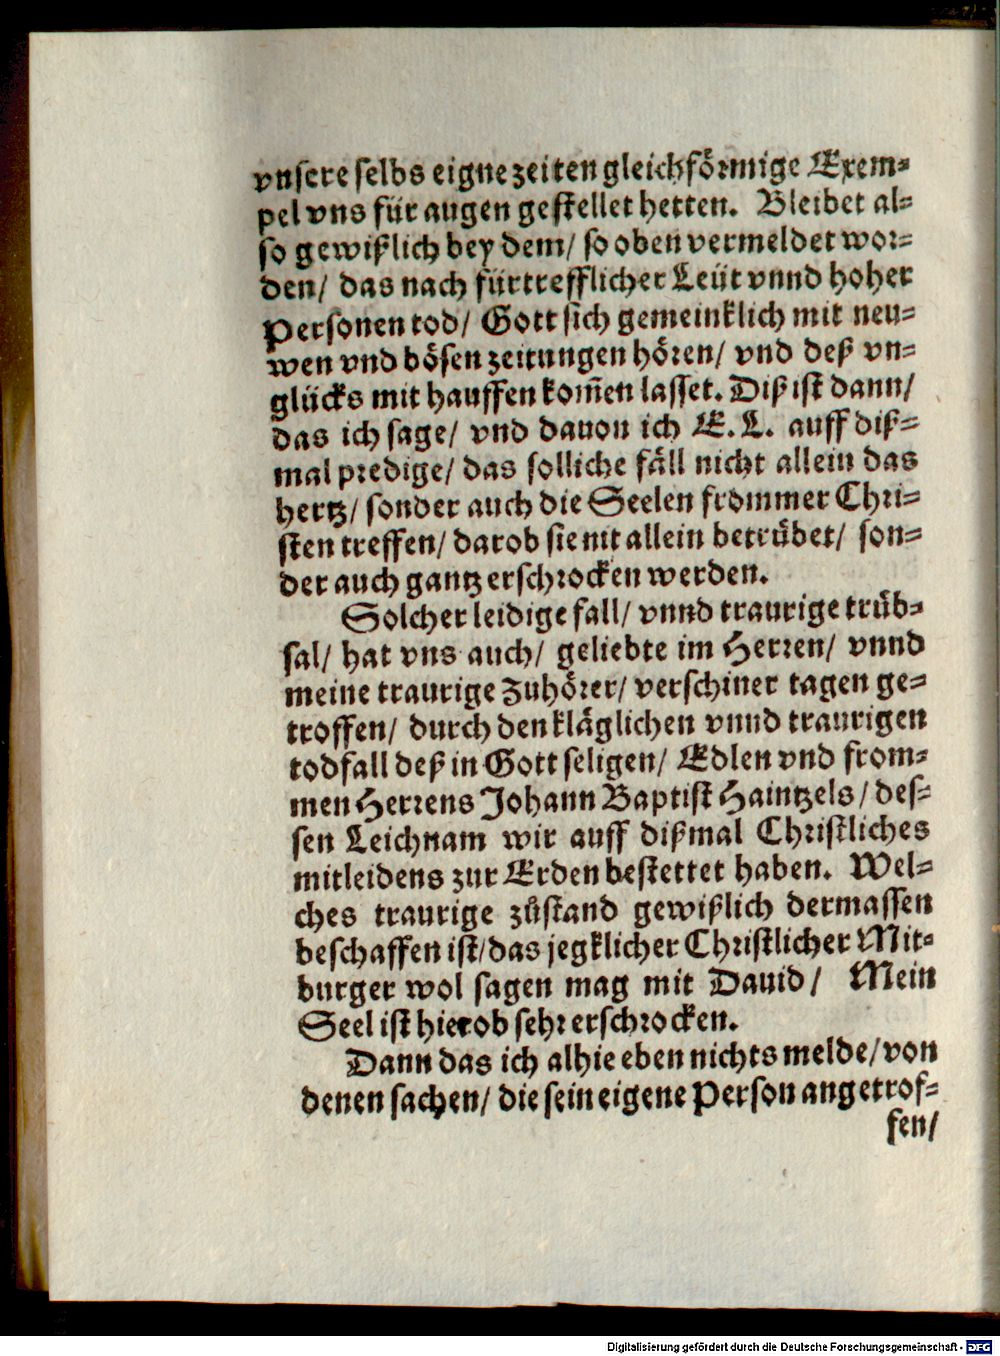 vnsere selbs eigne zeiten gleichförmige Exem-
pel vns für augen gestellet hetten. Bleibet al-
so gewißlich bey dem/ so oben vermeldet wor-
den/ das nach fürtrefflicher Leüt vnnd hoher
Personen tod/ Gott sich gemeinklich mit neu-
wen vnd bösen zeitungen hören/ vnd deß vn-
glücks mit hauffen kom̃en lasset. Diß ist dann/
das ich sage/ vnd dauon ich E. L. auff diß-
mal predige/ das solliche fäll nicht allein das
hertz/ sonder auch die Seelen frommer Chri-
sten treffen/ darob sie nit allein betrübet/ son-
der auch gantz erschrocken werden.
Solcher leidige fall/ vnnd traurige trüb-
sal/ hat vns auch/ geliebte im Herren/ vnnd
meine traurige Zuhörer/ verschiner tagen ge-
troffen/ durch den kläglichen vnnd traurigen
todfall deß in Gott seligen/ Edlen vnd from-
men Herrens Johann Baptist Haintzels/ des-
sen Leichnam wir auff dißmal Christliches
mitleidens zur Erden bestettet haben. Wel-
ches traurige zůstand gewißlich dermassen
beschaffen ist/das jegklicher Christlicher Mit-
burger wol sagen mag mit Dauid/ Mein
Seel ist hierob sehr erschrocken.
Dann das ich alhie eben nichts melde/von
denen sachen/ die sein eigene Person angetrof-
fen/
Digitalisierung gefördert durch die Deutsche Forschungsgemeinschaft - DFG